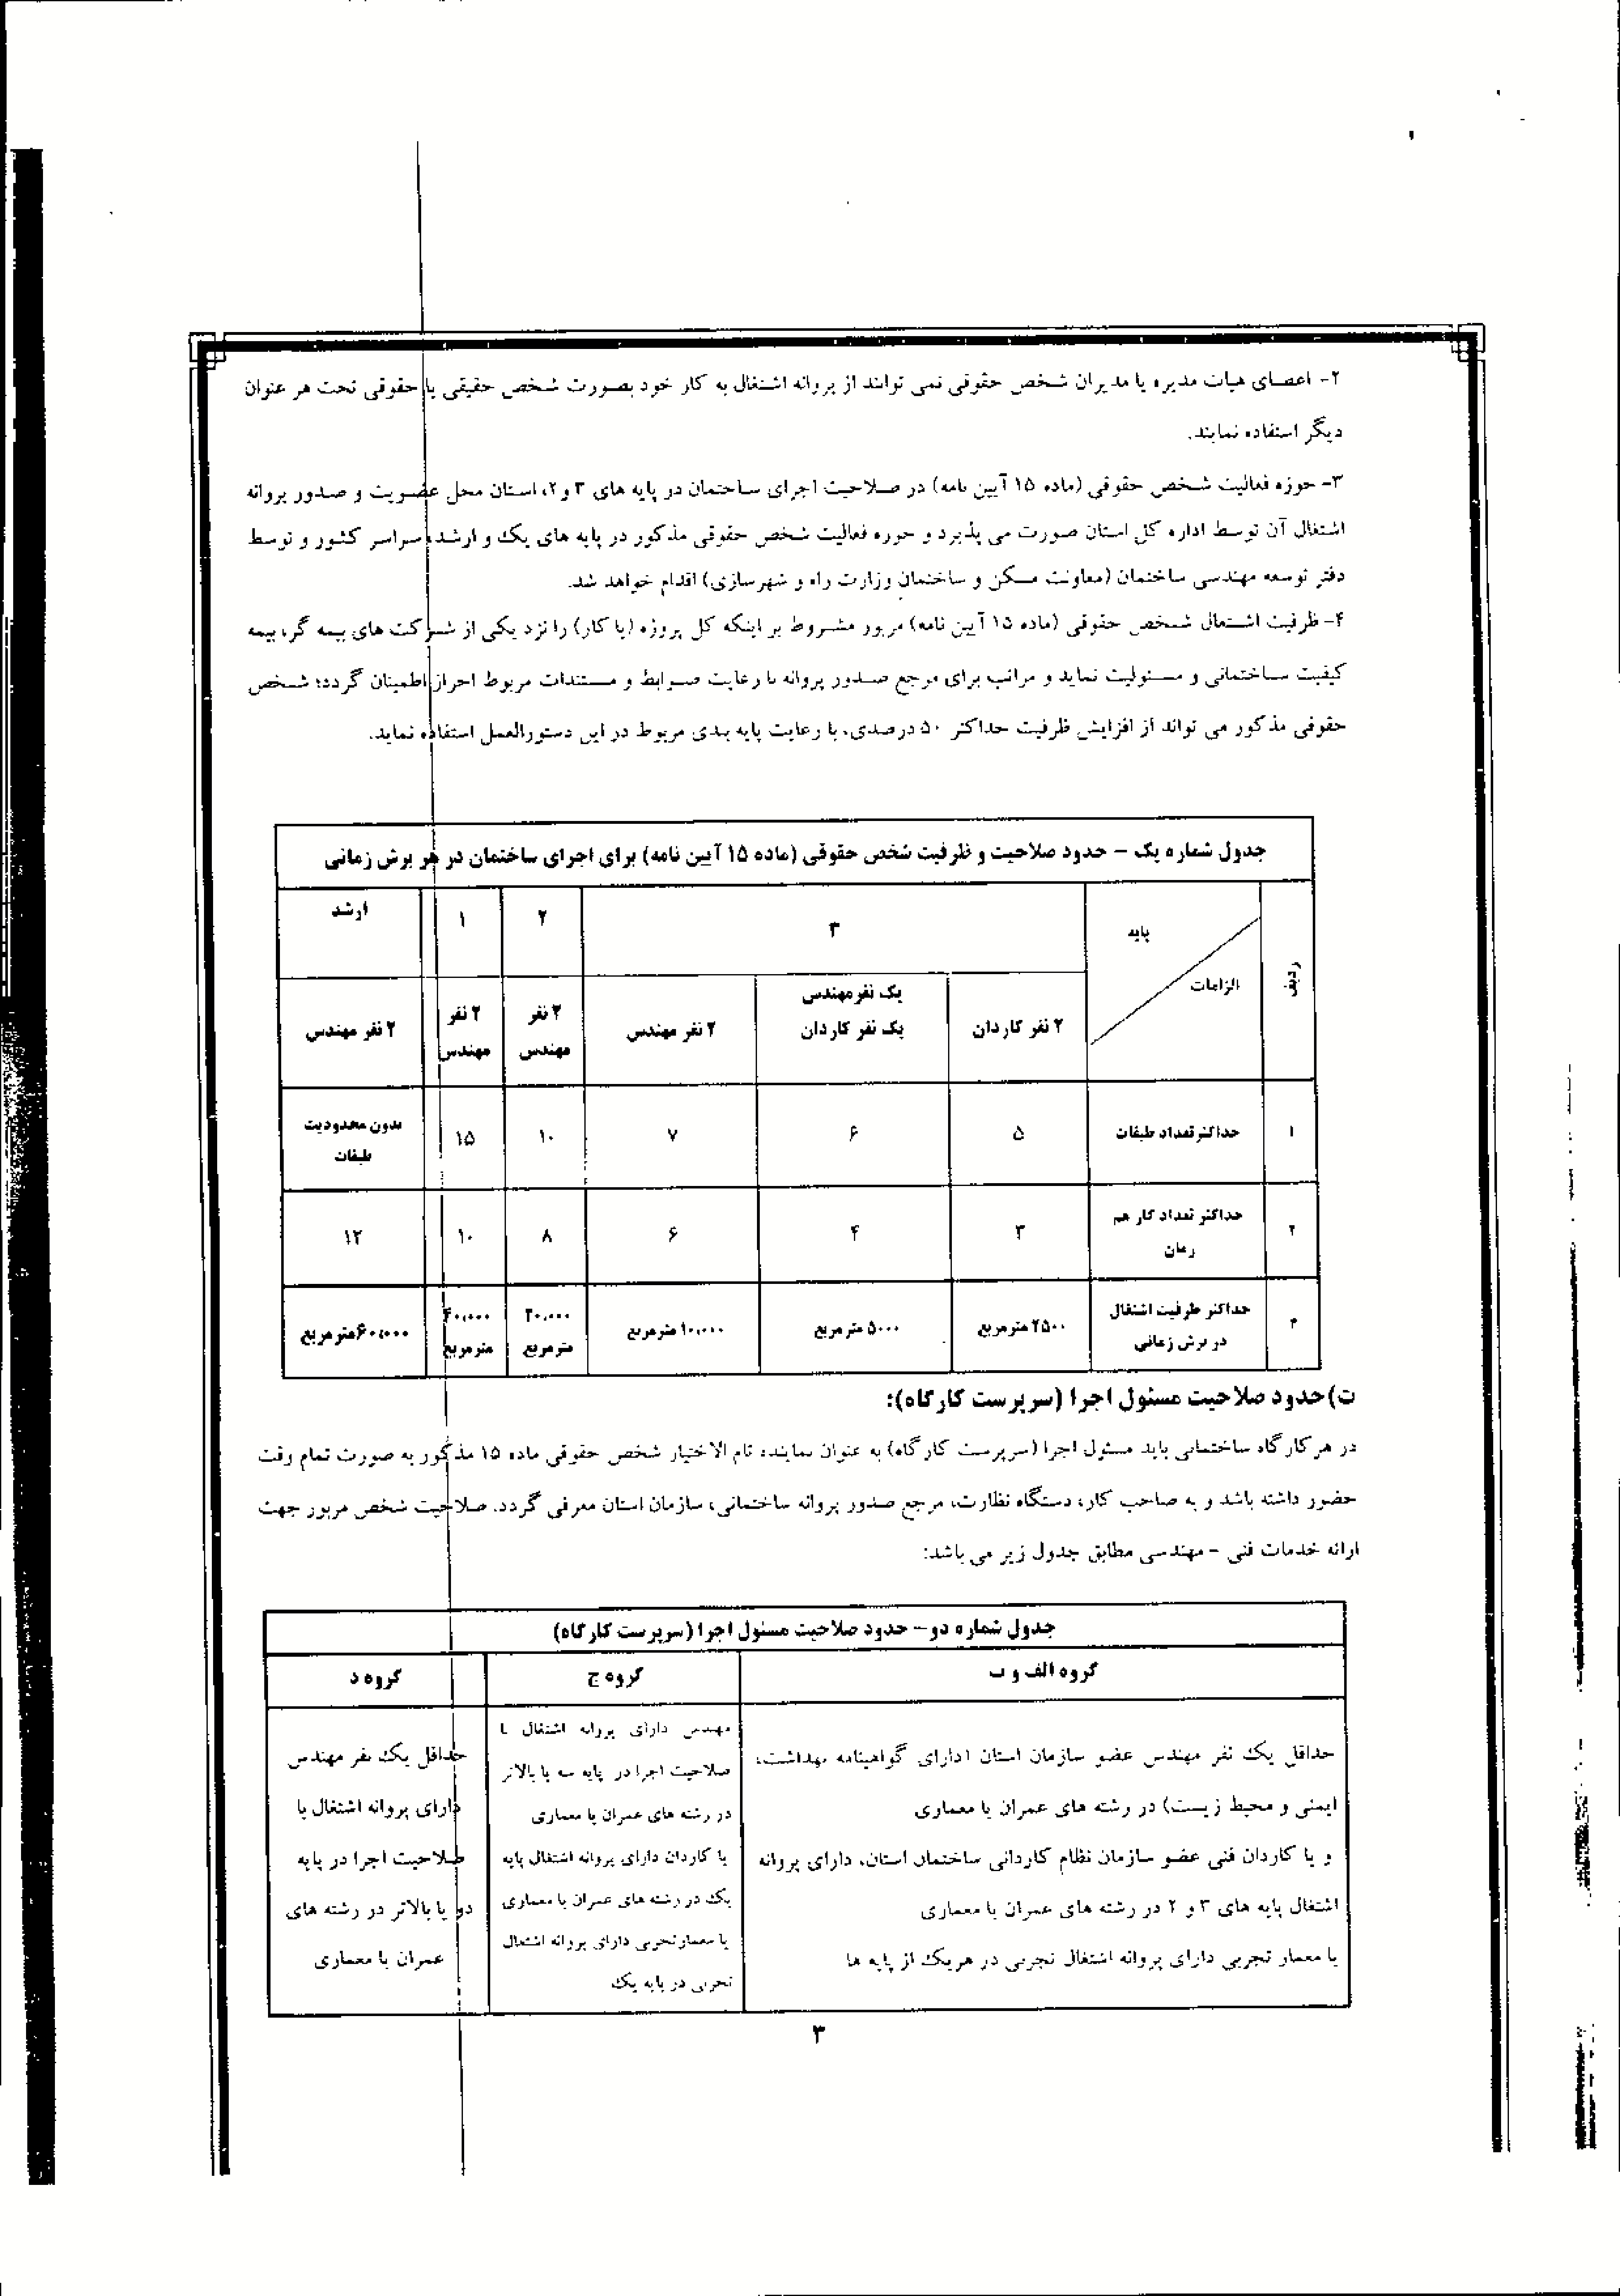 ۲- اعضای هیات مدیره یا مدیران شخص حقوقی نمی توانند از پروانه اشتغال به کار خود بصورت شخص حقیقی یا حقوقی تحت هر عنوان
دیگر استفاده نمایند.
۳- حوزه فعالیت شخص حقوقی (ماده ۱۵ آیین نامه) در صلاحیت اجرای ساختمان در پایه های ۳ و ۲، استان محل عضویت و صدور پروانه
اشتغال آن توسط اداره کل استان صورت می پذیرد و حوزه فعالیت شخص حقوقی مذکور در پایه های یک و ارشد، سراسر کشور و توسط
دفتر توسعه مهندسی ساختمان (معاونت مسکن و ساختمان وزارت راه و شهرسازی) اقدام خواهد شد.
۴- ظرفیت اشتغال شخص حقوقی (ماده ۱۵ آیین نامه) مزبور مشروط بر اینکه کل پروژه (یا کار) را نزد یکی از شرکت های بیمه گر، بیمه
کیفیت ساختمانی و مسئولیت نماید و مراتب برای مرجع صدور پروانه با رعایت ضوابط و مستندات مربوط احراز اطمینان گردد؛ شخص
حقوقی مذکور می تواند از افزایش ظرفیت حداکثر ۵۰ درصدی، با رعایت پایه بندی مربوط در این دستورالعمل استفاده نماید.
جدول شماره یک – حدود صلاحیت و ظرفیت شخص حقوقی (ماده ۱۵ آیین نامه) برای اجرای ساختمان در هر برش زمانی
ردیف پایه الزامات ۳ ۲ ۱ ارشد
۲ نفر کاردان یک نفر مهندس یک نفر کاردان ۲ نفر مهندس ۲ نفر مهندس ۲ نفر مهندس ۲ نفر مهندس
۱ حداکثر تعداد طبقات ۵ ۶ ۷ ۱۰ ۱۵ بدون محدودیت طبقات
۲ حداکثر تعداد کار هم زمان ۳ ۴ ۶ ۸ ۱۰ ۱۲
۳ حداکثر ظرفیت اشتغال در برش زمانی ۲۵۰۰ مترمربع ۵۰۰۰ مترمربع ۱۰،۰۰۰ مترمربع ۲۰،۰۰۰ مترمربع ۴۰،۰۰۰ مترمربع ۶۰،۰۰۰ مترمربع
ت) حدود صلاحیت مسئول اجرا (سرپرست کارگاه):
در هر کارگاه ساختمانی باید مسئول اجرا (سرپرست کارگاه) به عنوان نماینده تام الاختیار شخص حقوقی ماده ۱۵ مذکور به صورت تمام وقت
حضور داشته باشد و به صاحب کار، دستگاه نظارت، مرجع صدور پروانه ساختمانی، سازمان استان معرفی گردد. صلاحیت شخص مزبور جهت
ارائه خدمات فنی – مهندسی مطابق جدول زیر می باشد:
جدول شماره دو – حدود صلاحیت مسئول اجرا (سرپرست کارگاه)
گروه الف و ب
حداقل یک نفر مهندس عضو سازمان استان (دارای گواهینامه بهداشت،
ایمنی و محیط زیست) در رشته های عمران یا معماری
و یا کاردان فنی عضو سازمان نظام کاردانی ساختمان استان، دارای پروانه
اشتغال پایه های ۳ و ۲ در رشته های عمران یا معماری
یا معمار تجربی دارای پروانه اشتغال تجربی در هریک از پایه ها
گروه ج
مهندس دارای پروانه اشتغال با
صلاحیت اجرا در پایه سه یا بالاتر
در رشته های عمران یا معماری
یا کاردان دارای پروانه اشتغال پایه
یک در رشته های عمران یا معماری
یا معمار تجربی دارای پروانه اشتغال
تجربی در پایه یک
گروه د
حداقل یک نفر مهندس
دارای پروانه اشتغال با
صلاحیت اجرا در پایه
دو یا بالاتر در رشته های
عمران یا معماری
۳